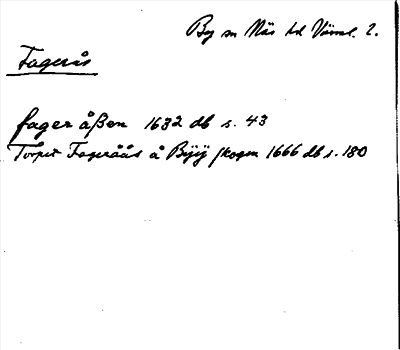 By sn Näs hd Värml. l.
Fagerås
fager åßen 1632 db s. 43
Torpet Fageråås å Byiÿ skogen 1666 db s. 180